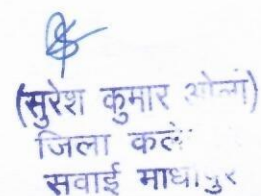 (सुरेश कुमार ओला)
जिला कले
सवाई माधोपुर